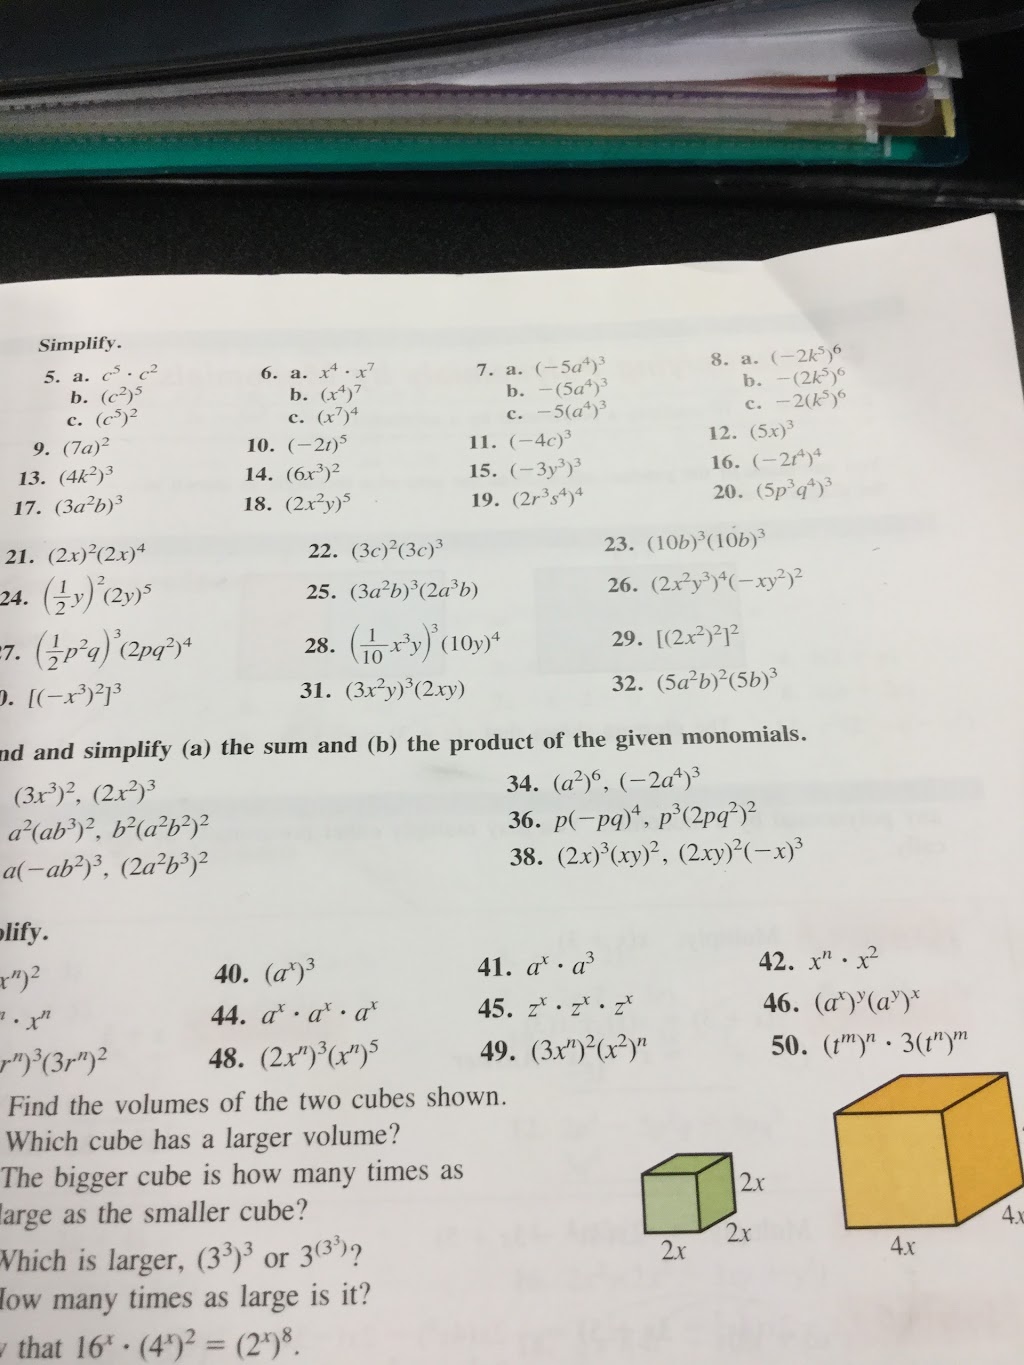 Simplify.
5. a. c⁵ · c² 6. a. x⁴ · x⁷ 7. a. (−5a⁴)³ 8. a. (−2k⁵)⁶
b. (c²)⁵ b. (x⁴)⁷ b. −(5a⁴)³ b. −(2k⁵)⁶
c. (c⁵)² c. (x⁷)⁴ c. −5(a⁴)³ c. −2(k⁵)⁶
9. (7a)² 10. (−2t)⁵ 11. (−4c)³ 12. (5x)³
13. (4k²)³ 14. (6x³)² 15. (−3y³)³ 16. (−2t⁴)⁴
17. (3a²b)³ 18. (2x²y)⁵ 19. (2r³s⁴)⁴ 20. (5p³q⁴)³
21. (2x)²(2x)⁴ 22. (3c)²(3c)³ 23. (10b)³(10b)³
24. (1/2 y)²(2y)⁵ 25. (3a²b)³(2a³b) 26. (2x²y³)⁴(−xy²)²
7. (1/2 p²q)³(2pq²)⁴ 28. (1/10 x³y)³(10y)⁴ 29. [(2x²)²]²
. [(−x³)²]³ 31. (3x²y)³(2xy) 32. (5a²b)²(5b)³
nd and simplify (a) the sum and (b) the product of the given monomials.
(3x³)², (2x²)³ 34. (a²)⁶, (−2a⁴)³
a²(ab³)², b²(a²b²)² 36. p(−pq)⁴, p³(2pq²)²
a(−ab²)³, (2a²b³)² 38. (2x)³(xy)², (2xy)²(−x)³
plify.
xⁿ)² 40. (aˣ)³ 41. aˣ · a³ 42. xⁿ · x²
ⁿ · xⁿ 44. aˣ · aˣ · aˣ 45. zˣ · zˣ · zˣ 46. (aˣ)ʸ(aʸ)ˣ
rⁿ)³(3rⁿ)² 48. (2xⁿ)³(xⁿ)⁵ 49. (3xⁿ)²(x²)ⁿ 50. (tᵐ)ⁿ · 3(tⁿ)ᵐ
Find the volumes of the two cubes shown.
Which cube has a larger volume?
The bigger cube is how many times as
large as the smaller cube?
Which is larger, (3³)³ or 3^(3³)?
How many times as large is it?
that 16ˣ · (4ˣ)² = (2ˣ)⁸.
2x
2x
2x
4x
4x